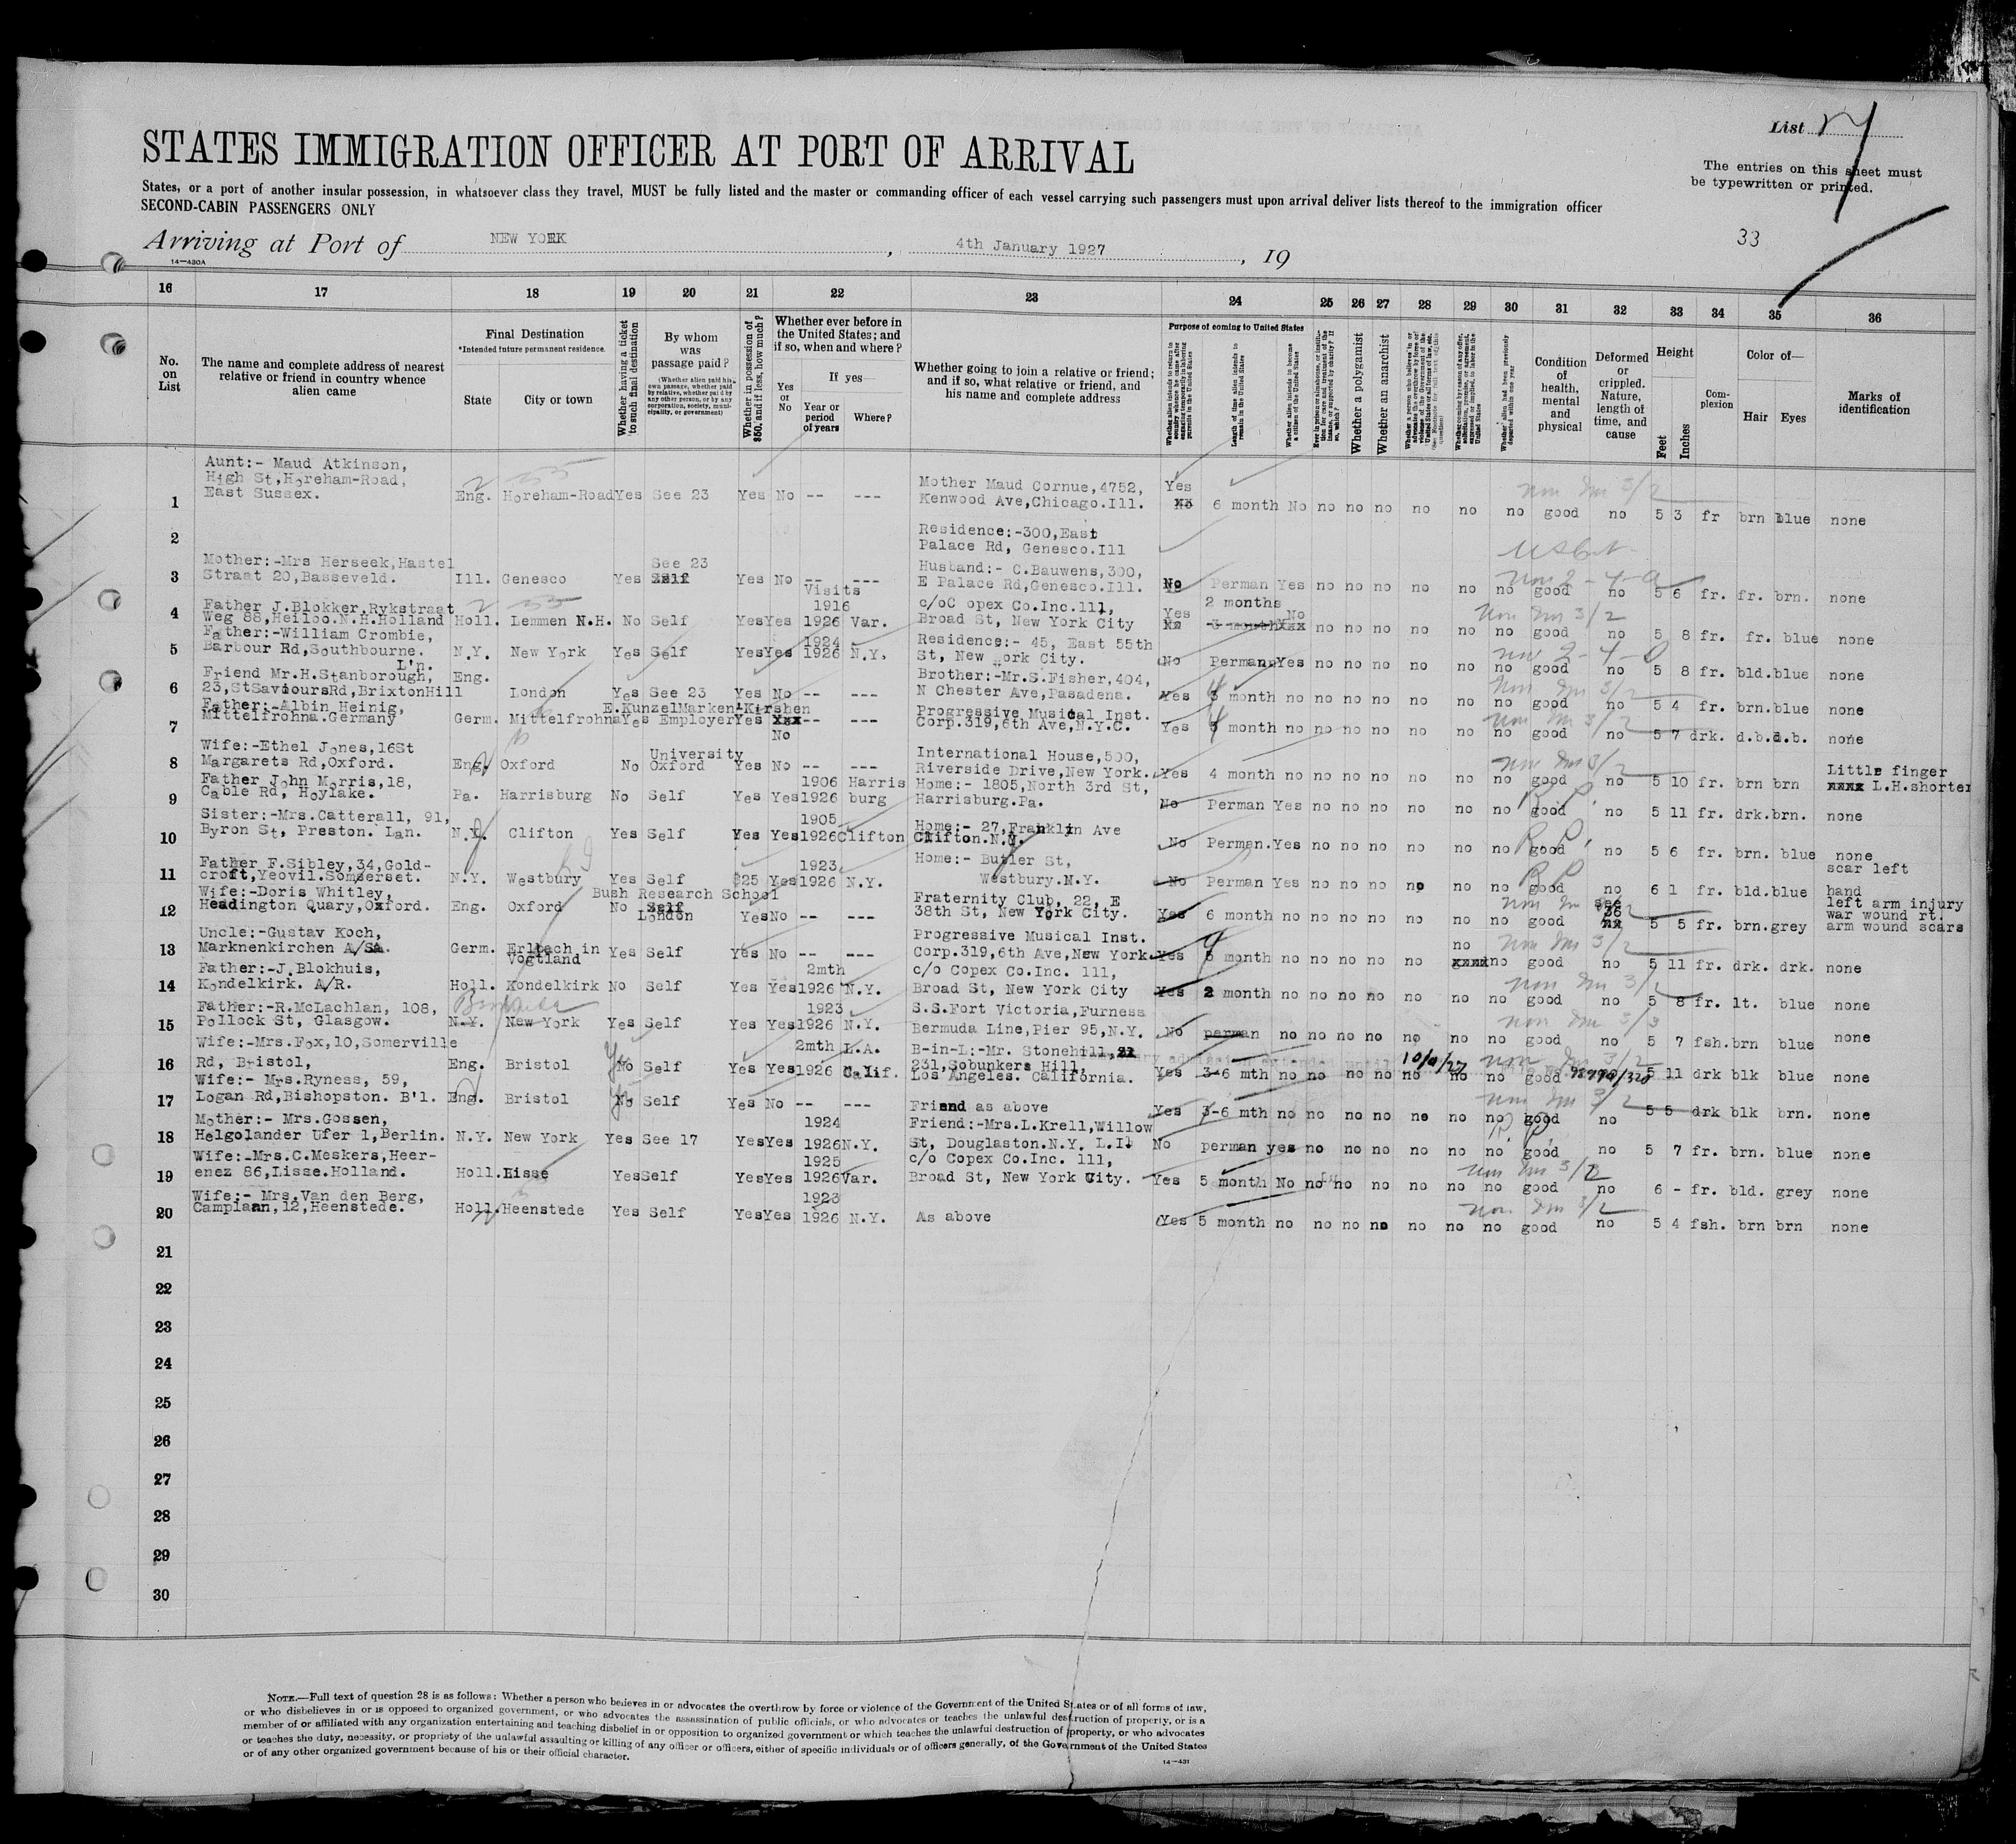 List
STATES IMMIGRATION OFFICER AT PORT OF ARRIVAL
The entries on this sheet must
be typewritten or printed.
States, or a port of another insular possession, in whatsoever class they travel, MUST be fully listed and the master or commanding officer of each vessel carrying such passengers must upon arrival deliver lists thereof to the immigration officer
SECOND-CABIN PASSENGERS ONLY
33
Arriving at Port of NEW YORK, 4th January 1927, 19
14—430A
16 17 18 19 20 21 22 23 24 25 26 27 28 29 30 31 32 33 34 35 36
No. on List
The name and complete address of nearest relative or friend in country whence alien came
Final Destination
*Intended future permanent residence.
State
City or town
Whether having a ticket to such final destination
By whom was passage paid?
(Whether alien paid his own passage, whether paid by relative, whether paid by any other person, or by any corporation, society, municipality, or government)
Whether in possession of $50, and if less, how much?
Whether ever before in the United States; and if so, when and where?
Yes or No
If yes—
Year or period of years
Where?
Whether going to join a relative or friend; and if so, what relative or friend, and his name and complete address
Purpose of coming to United States
Length of time alien intends to remain in the United States
Whether alien intends to become a citizen of the United States
Whether a polygamist
Whether an anarchist
Condition of health, mental and physical
Deformed or crippled. Nature, length of time, and cause
Height
Feet
Inches
Complexion
Color of—
Hair
Eyes
Marks of identification
Aunt:- Maud Atkinson,
High St,Horeham-Road,
East Sussex.
1 Eng. Horeham-Road Yes See 23 Yes No -- --- Mother Maud Cornue,4752,
Kenwood Ave,Chicago.Ill. Yes 6 month No no no no no no no good no 5 3 fr brn blue none
2 Residence:-300,East
Palace Rd, Genesco.Ill
Mother:-Mrs Herseek,Hastel
3 Straat 20,Basseveld. Ill. Genesco Yes See 23 Yes No -- --- Husband:- C.Bauwens,300,
E Palace Rd,Genesco.Ill. No Perman Yes no no no no no no good no 5 6 fr. fr. brn. none
Father J.Blokker,Rykstraat
4 Weg 88,Heiloo.N.H.Holland Holl. Lemmen N.H. No Self Yes Yes Visits 1916 1926 Var. c/oC opex Co.Inc.111,
Broad St, New York City Yes 2 months No no no no no no no good no 5 8 fr. fr. blue none
Father:-William Crombie,
5 Barbour Rd,Southbourne. N.Y. New York Yes Self Yes Yes 1924 1926 N.Y. Residence:- 45, East 55th
St, New ork City. No Perman Yes no no no no no no good no 5 8 fr. bld. blue none
L'n.
Friend Mr.H.Stanborough,
6 23,StSavioursRd,BrixtonHill Eng. London Yes See 23 Yes No -- --- Brother:-Mr.S.Fisher,404,
N Chester Ave,Pasadena. Yes month no no no no no no no good no 5 4 fr. brn. blue none
Father:-Albin Heinig,
7 Mittelfrohna.Germany Germ. Mittelfrohna Yes E.KunzelMarken Kirshen Employer Yes No -- --- Progressive Musical Inst.
Corp.319,6th Ave,N.Y.C. Yes month no no no no no no no good no 5 7 drk. d.b. d.b. none
Wife:-Ethel Jones,16St
8 Margarets Rd,Oxford. Eng. Oxford No University Oxford Yes No -- --- International House,500,
Riverside Drive,New York. Yes 4 month no no no no no no no good no 5 10 fr. brn brn Little finger
L.H.shorter
Father John Morris,18,
9 Cable Rd, Hoylake. Pa. Harrisburg No Self Yes Yes 1906 1926 Harris burg Home:- 1805,North 3rd St,
Harrisburg.Pa. No Perman Yes no no no no no no good no 5 11 fr. drk. brn. none
Sister:-Mrs.Catterall, 91,
10 Byron St, Preston. Lan. Clifton Yes Self Yes Yes 1905 1926 Clifton Home:- 27,Franklin Ave
Clifton. No Perman. Yes no no no no no no good no 5 6 fr. brn. blue none
Father F.Sibley,34,Gold-
11 croft,Yeovil.Somserset. N.Y. Westbury Yes Self $25 Yes 1923 1926 N.Y. Home:- Butler St,
Westbury.N.Y. No Perman Yes no no no no no no good no 6 1 fr. bld. blue scar left
hand
Wife:-Doris Whitley,
12 Headington Quary,Oxford. Eng. Oxford No Bush Research School London Yes No -- --- Fraternity Club, 22, E
38th St, New York City. Yes 6 month no no no no no no no good see 36 5 5 fr. brn. grey left arm injury
war wound rt.
arm wound scars
Uncle:-Gustav Koch,
13 Marknenkirchen A/SA. Germ. Erlbach in Vogtland Yes Self Yes No -- --- Progressive Musical Inst.
Corp.319,6th Ave,New York Yes month no no no no no no no good no 5 11 fr. drk. drk. none
Father:-J.Blokhuis,
14 Kondelkirk. A/R. Holl. Kondelkirk No Self Yes Yes 2mth 1926 N.Y. c/o Copex Co.Inc. 111,
Broad St, New York City Yes 2 month no no no no no no no good no 5 8 fr. lt. blue none
Father:-R.McLachlan, 108,
15 Pollock St, Glasgow. N.Y. New York Bermuda Yes Self Yes Yes 1923 1926 N.Y. S.S.Fort Victoria,Furness
Bermuda Line,Pier 95,N.Y. No perman no no no no no no no good no 5 7 fsh. brn blue none
Wife:-Mrs.Fox,10,Somerville
16 Rd, Bristol, Eng. Bristol No Self Yes Yes 2mth 1926 L.A. Calif. B-in-L:-Mr. Stonehill,
231,Sobunkers Hill,
Los Angeles. California. Yes 3-6 mth no no no no no no no good 5 11 drk blk blue none
Wife:- Mrs.Ryness, 59,
17 Logan Rd,Bishopston. B'l. Eng. Bristol No Self Yes No -- --- Friend as above Yes 3-6 mth no no no no no no no good no 5 5 drk blk brn. none
Mother:- Mrs.Gossen,
18 Helgolander Ufer 1,Berlin. N.Y. New York Yes See 17 Yes Yes 1924 1926 N.Y. Friend:-Mrs.L.Krell,Willow
St, Douglaston.N.Y. L.I. No perman yes no no no no no no good no 5 7 fr. brn. blue none
Wife:-Mrs.C.Meskers,Heer-
19 enez 86,Lisse.Holland. Holl. Lisse Yes Self Yes Yes 1925 1926 Var. c/o Copex Co.Inc. 111,
Broad St, New York City. Yes 5 month No no no no no no no good no 6 - fr. bld. grey none
Wife:- Mrs.Van den Berg,
20 Camplaan,12,Heenstede. Holl. Heenstede Yes Self Yes Yes 1923 1926 N.Y. As above Yes 5 month no no no no no no no good no 5 4 fsh. brn brn none
21
22
23
24
25
26
27
28
29
30
NOTE.—Full text of question 28 is as follows: Whether a person who believes in or advocates the overthrow by force or violence of the Government of the United States or of all forms of law,
or who disbelieves in or is opposed to organized government, or who advocates the assassination of public officials, or who advocates or teaches the unlawful destruction of property, or is a
member of or affiliated with any organization entertaining and teaching disbelief in or opposition to organized government or which teaches the unlawful destruction of property, or who advocates
or teaches the duty, necessity, or propriety of the unlawful assaulting or killing of any officer or officers, either of specific individuals or of officers generally, of the Government of the United States
or of any other organized government because of his or their official character.
14—431